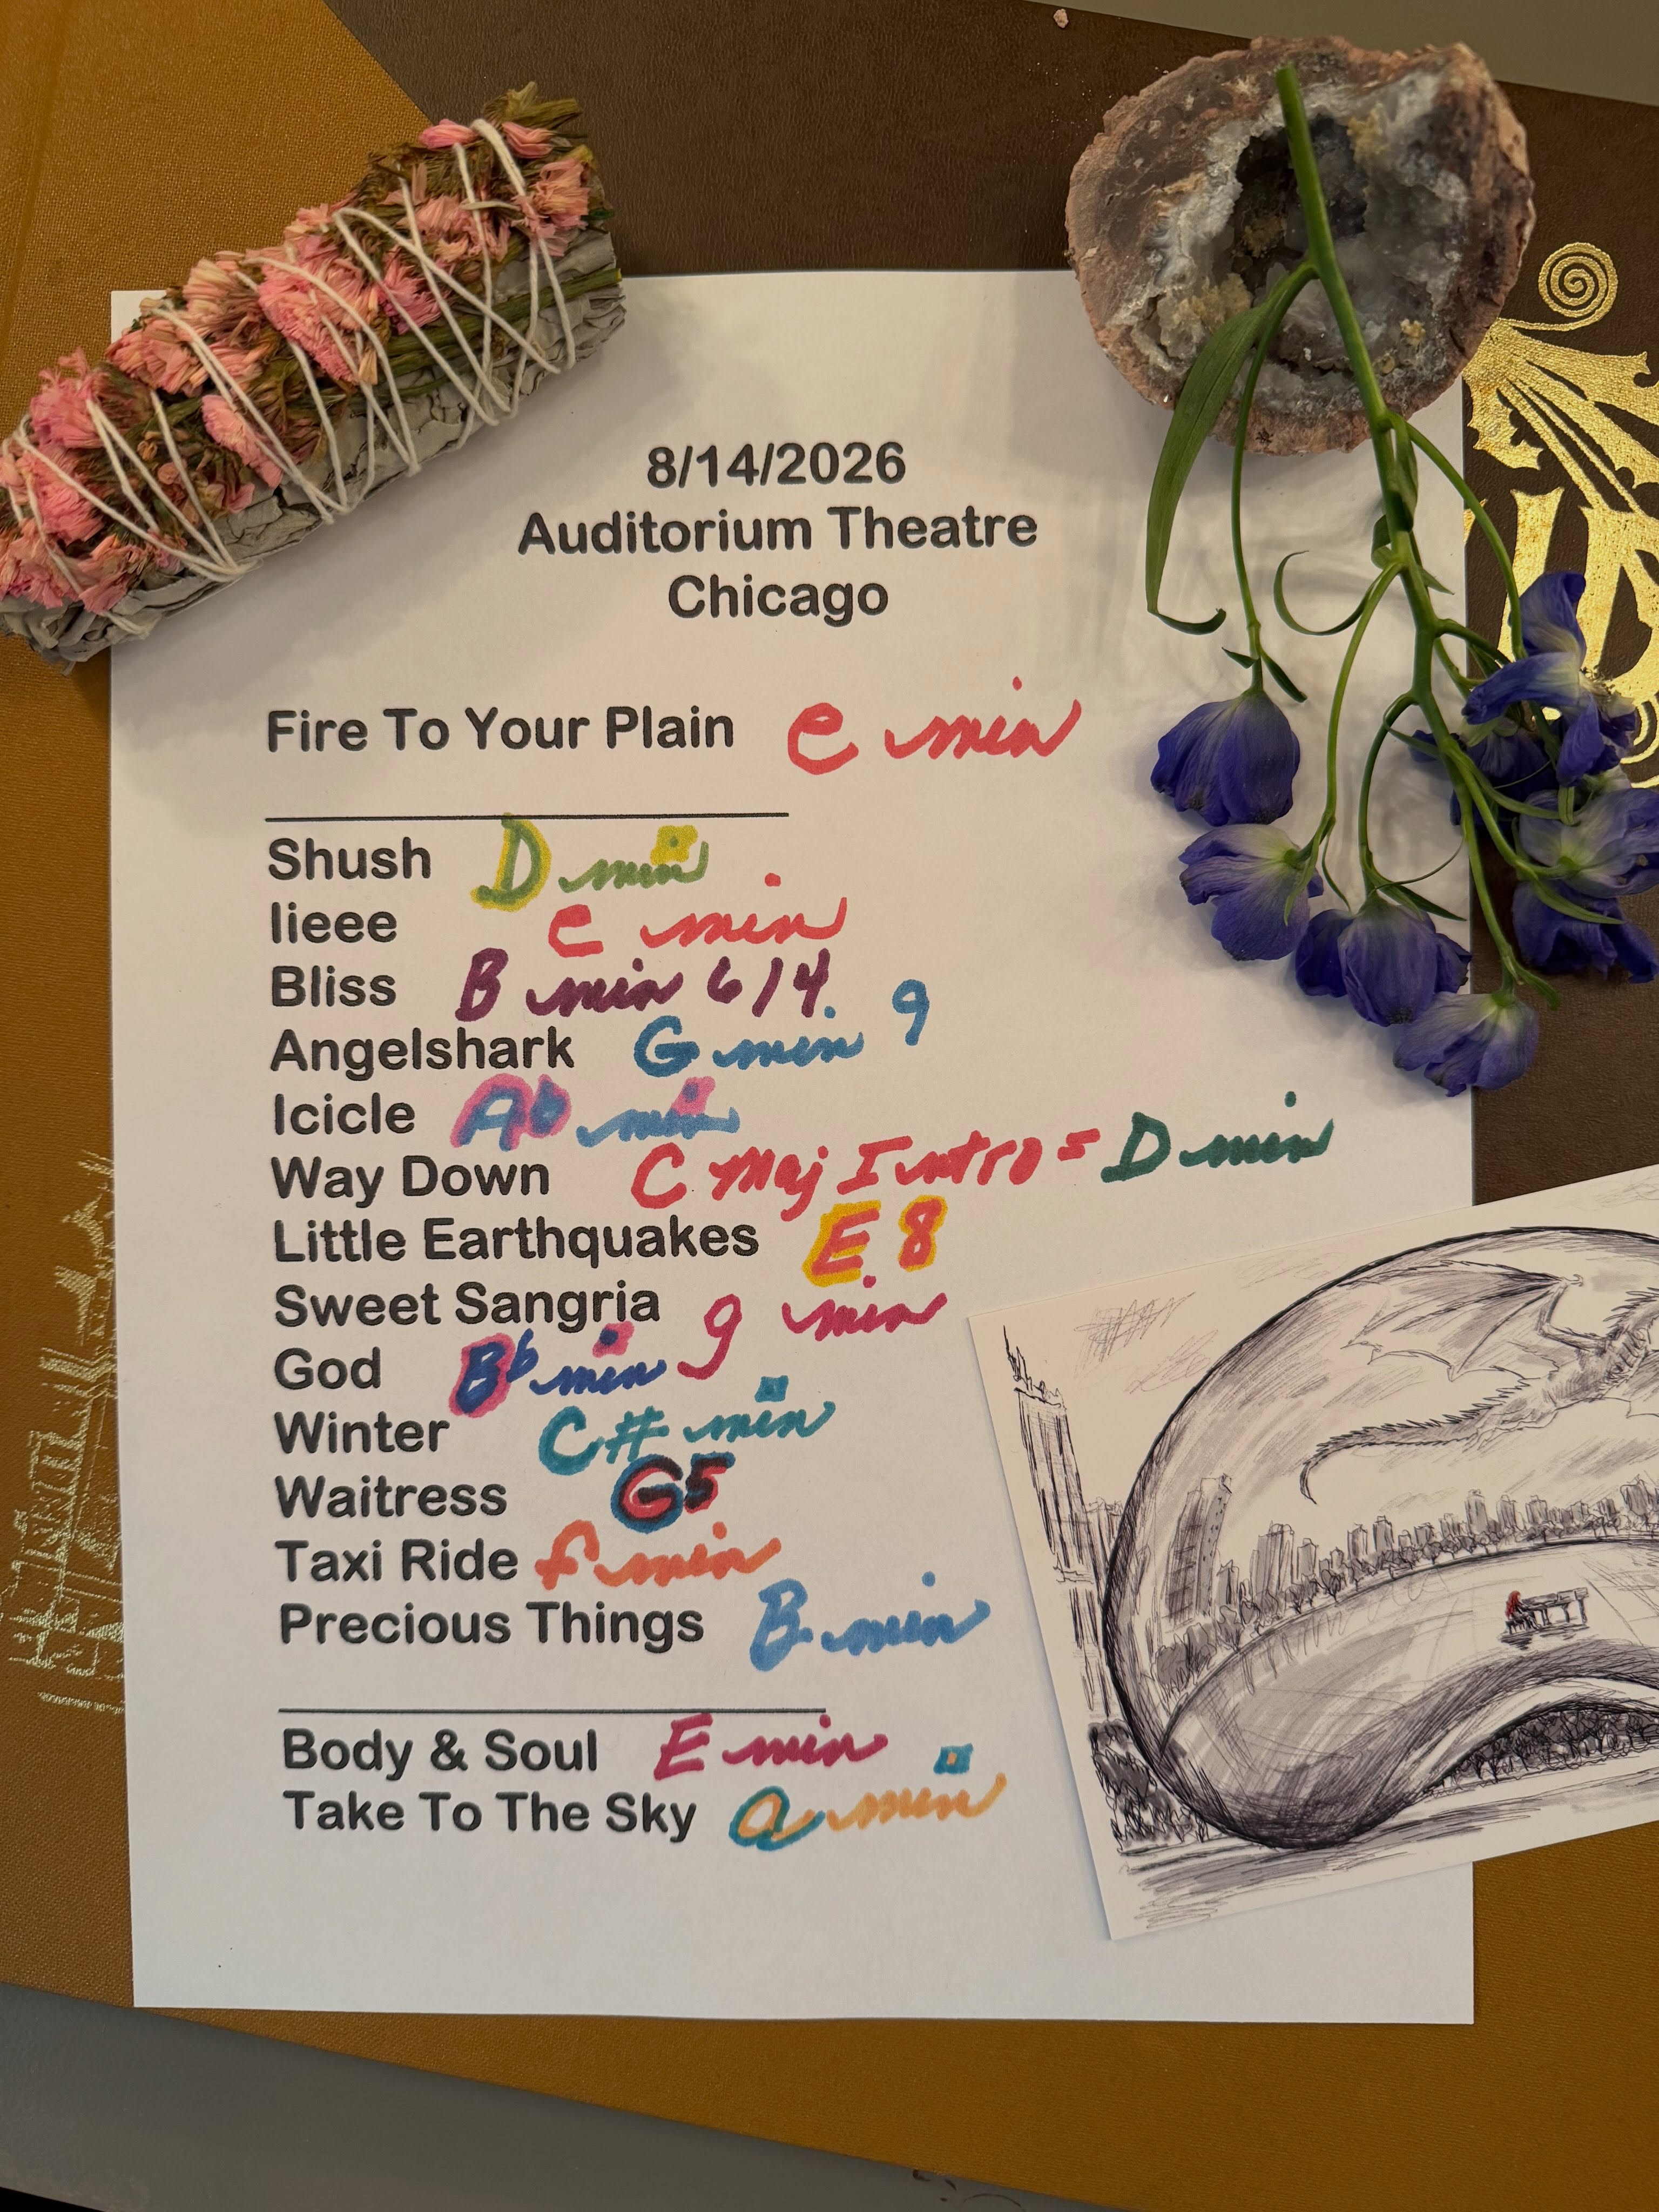 8/14/2026
Auditorium Theatre
Chicago
Fire To Your Plain e min
Shush D min
Iieee e min
Bliss B min 6/4
Angelshark G min 9
Icicle Ab min
Way Down C Maj Intro = D min
Little Earthquakes E 8
Sweet Sangria g min
God Bb min
Winter C# min
Waitress G5
Taxi Ride f min
Precious Things B min
Body & Soul E min
Take To The Sky a min